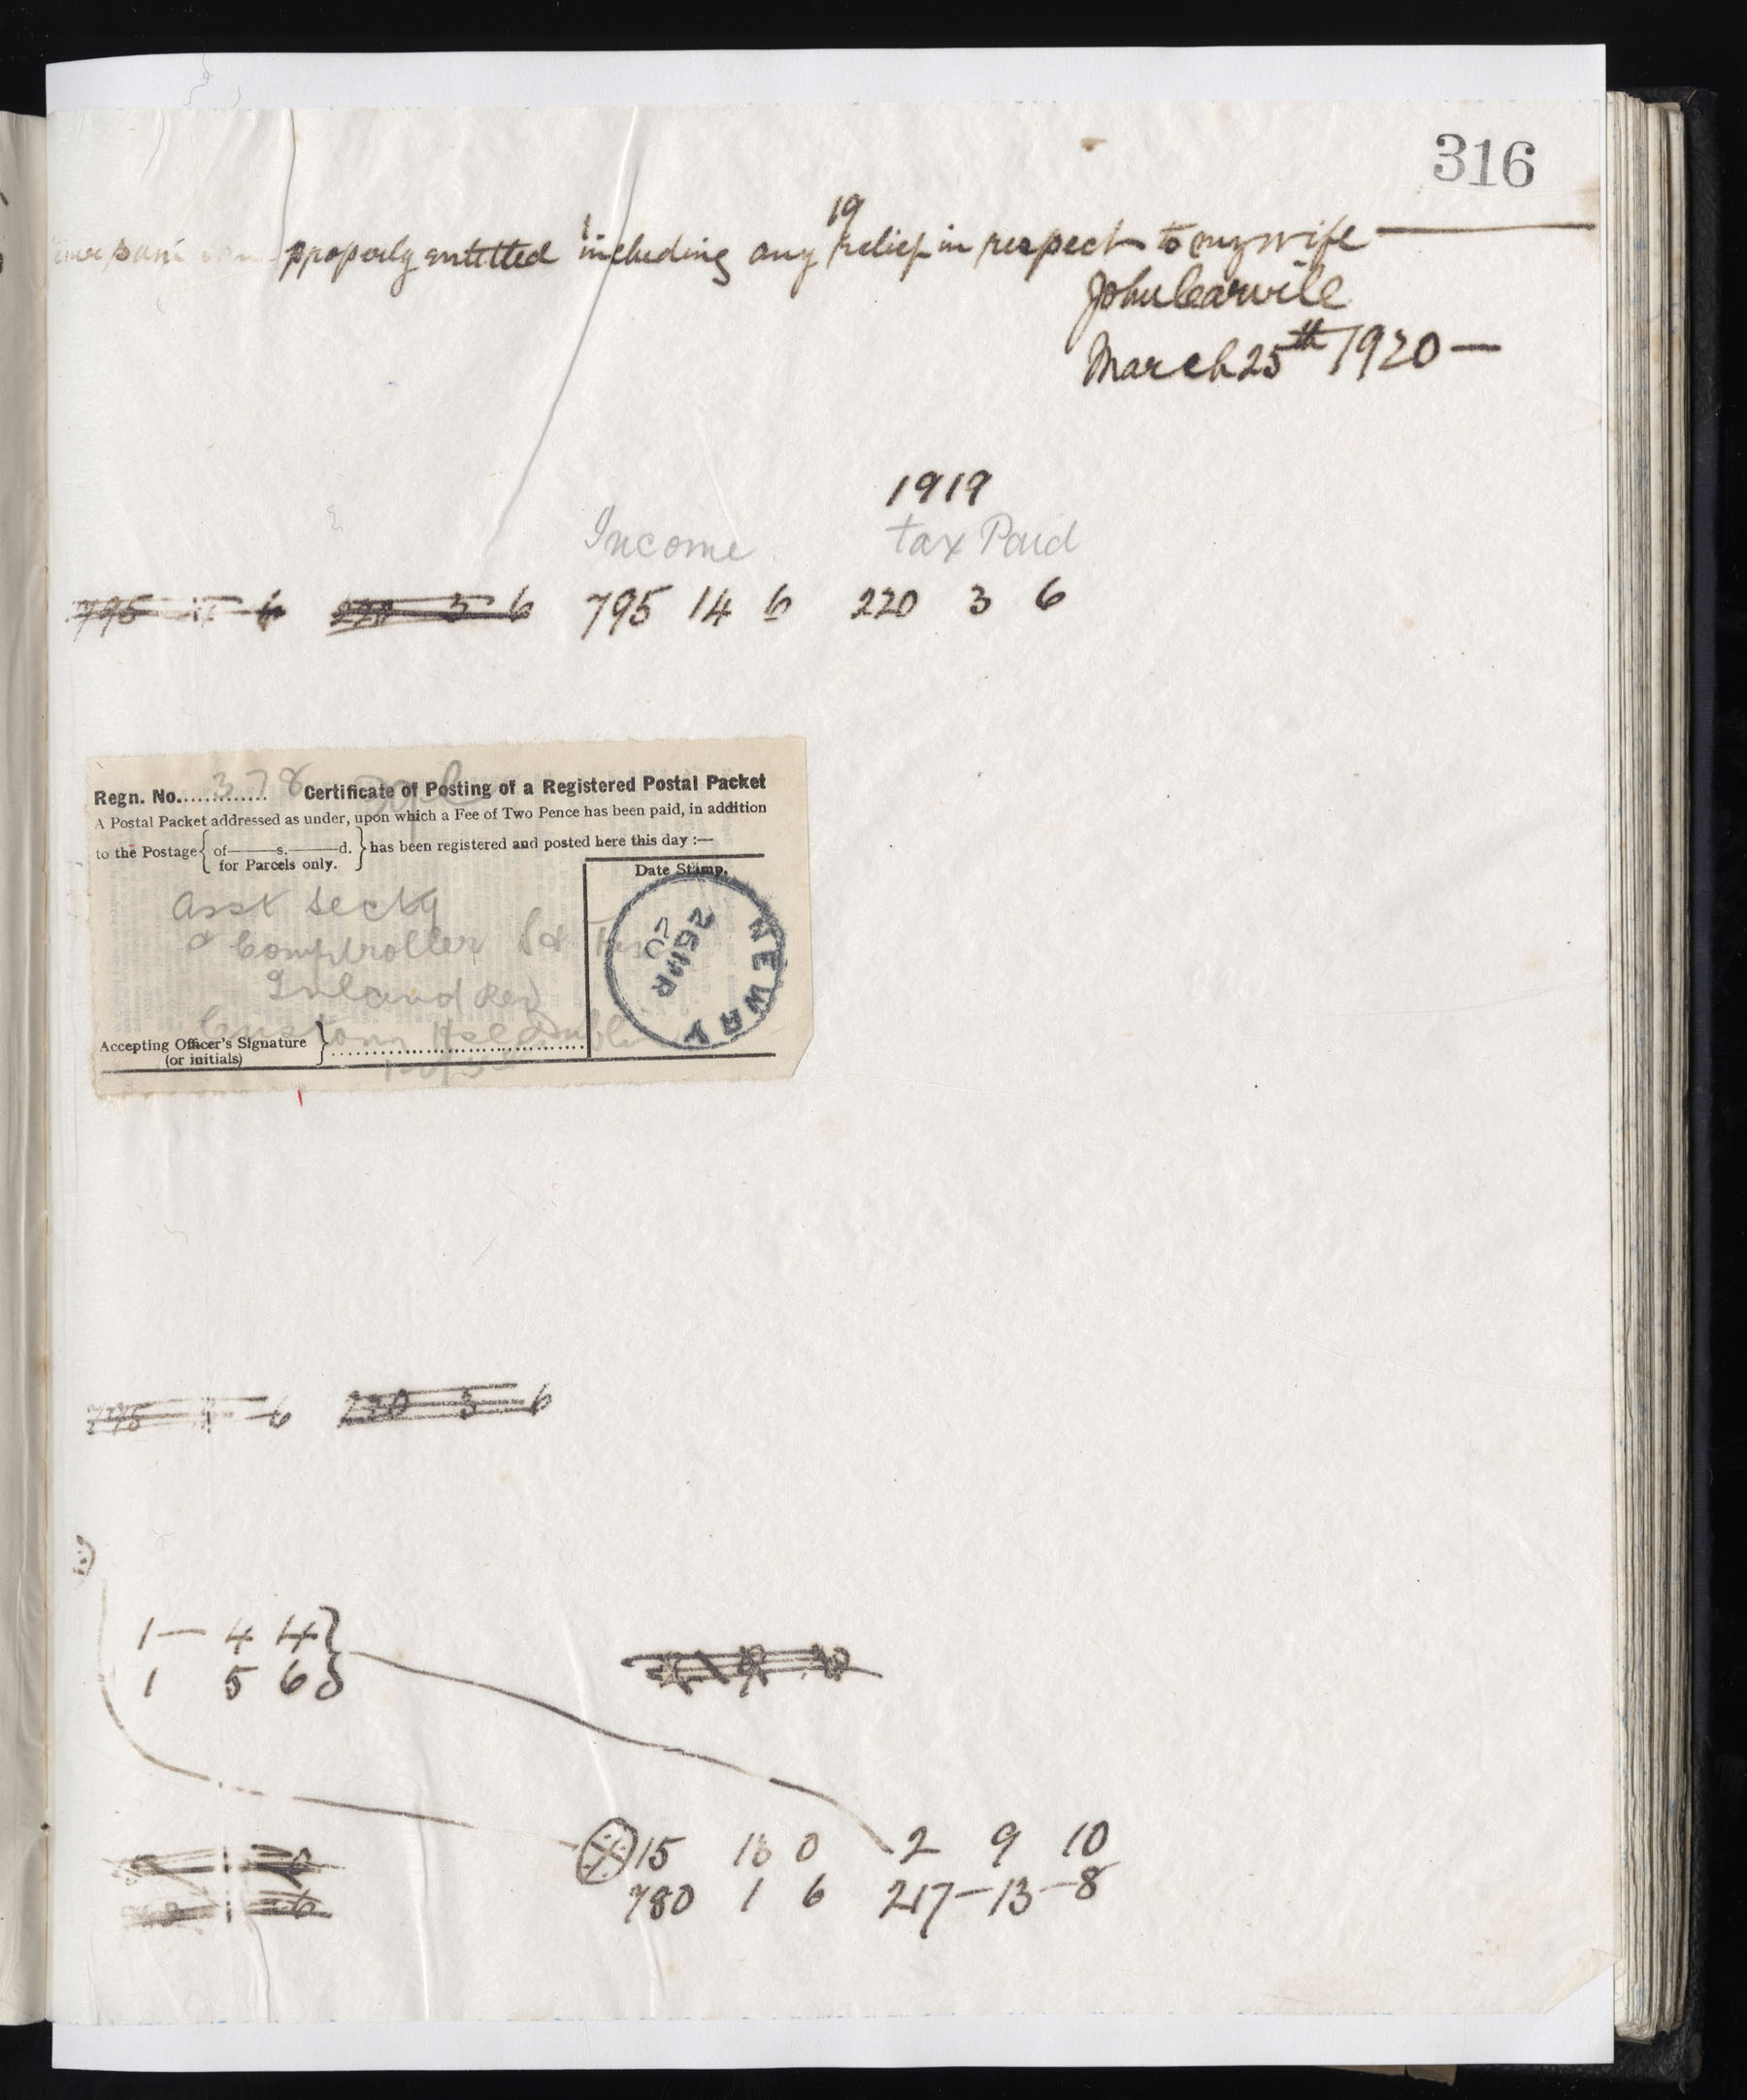 316
19
properly entitled including any relief in respect to my wife
John Carvile
March 25th 1920 —
1919
Income tax Paid
795 6 220 3 6 795 14 6 220 3 6
Regn. No. 378 Certificate of Posting of a Registered Postal Packet
A Postal Packet addressed as under, upon which a Fee of Two Pence has been paid, in addition
to the Postage { of——s.——d. for Parcels only. } has been registered and posted here this day :—
Date Stamp.
Asst Secty
& Comptroller
Inland Rev
Custom Hse Dublin
NEWRY
25 MR
20
Accepting Officer's Signature
(or initials)
795 6 220 3 6
1 — 4 4
1 5 6
15 13 0 2 9 10
780 1 6 217-13-8